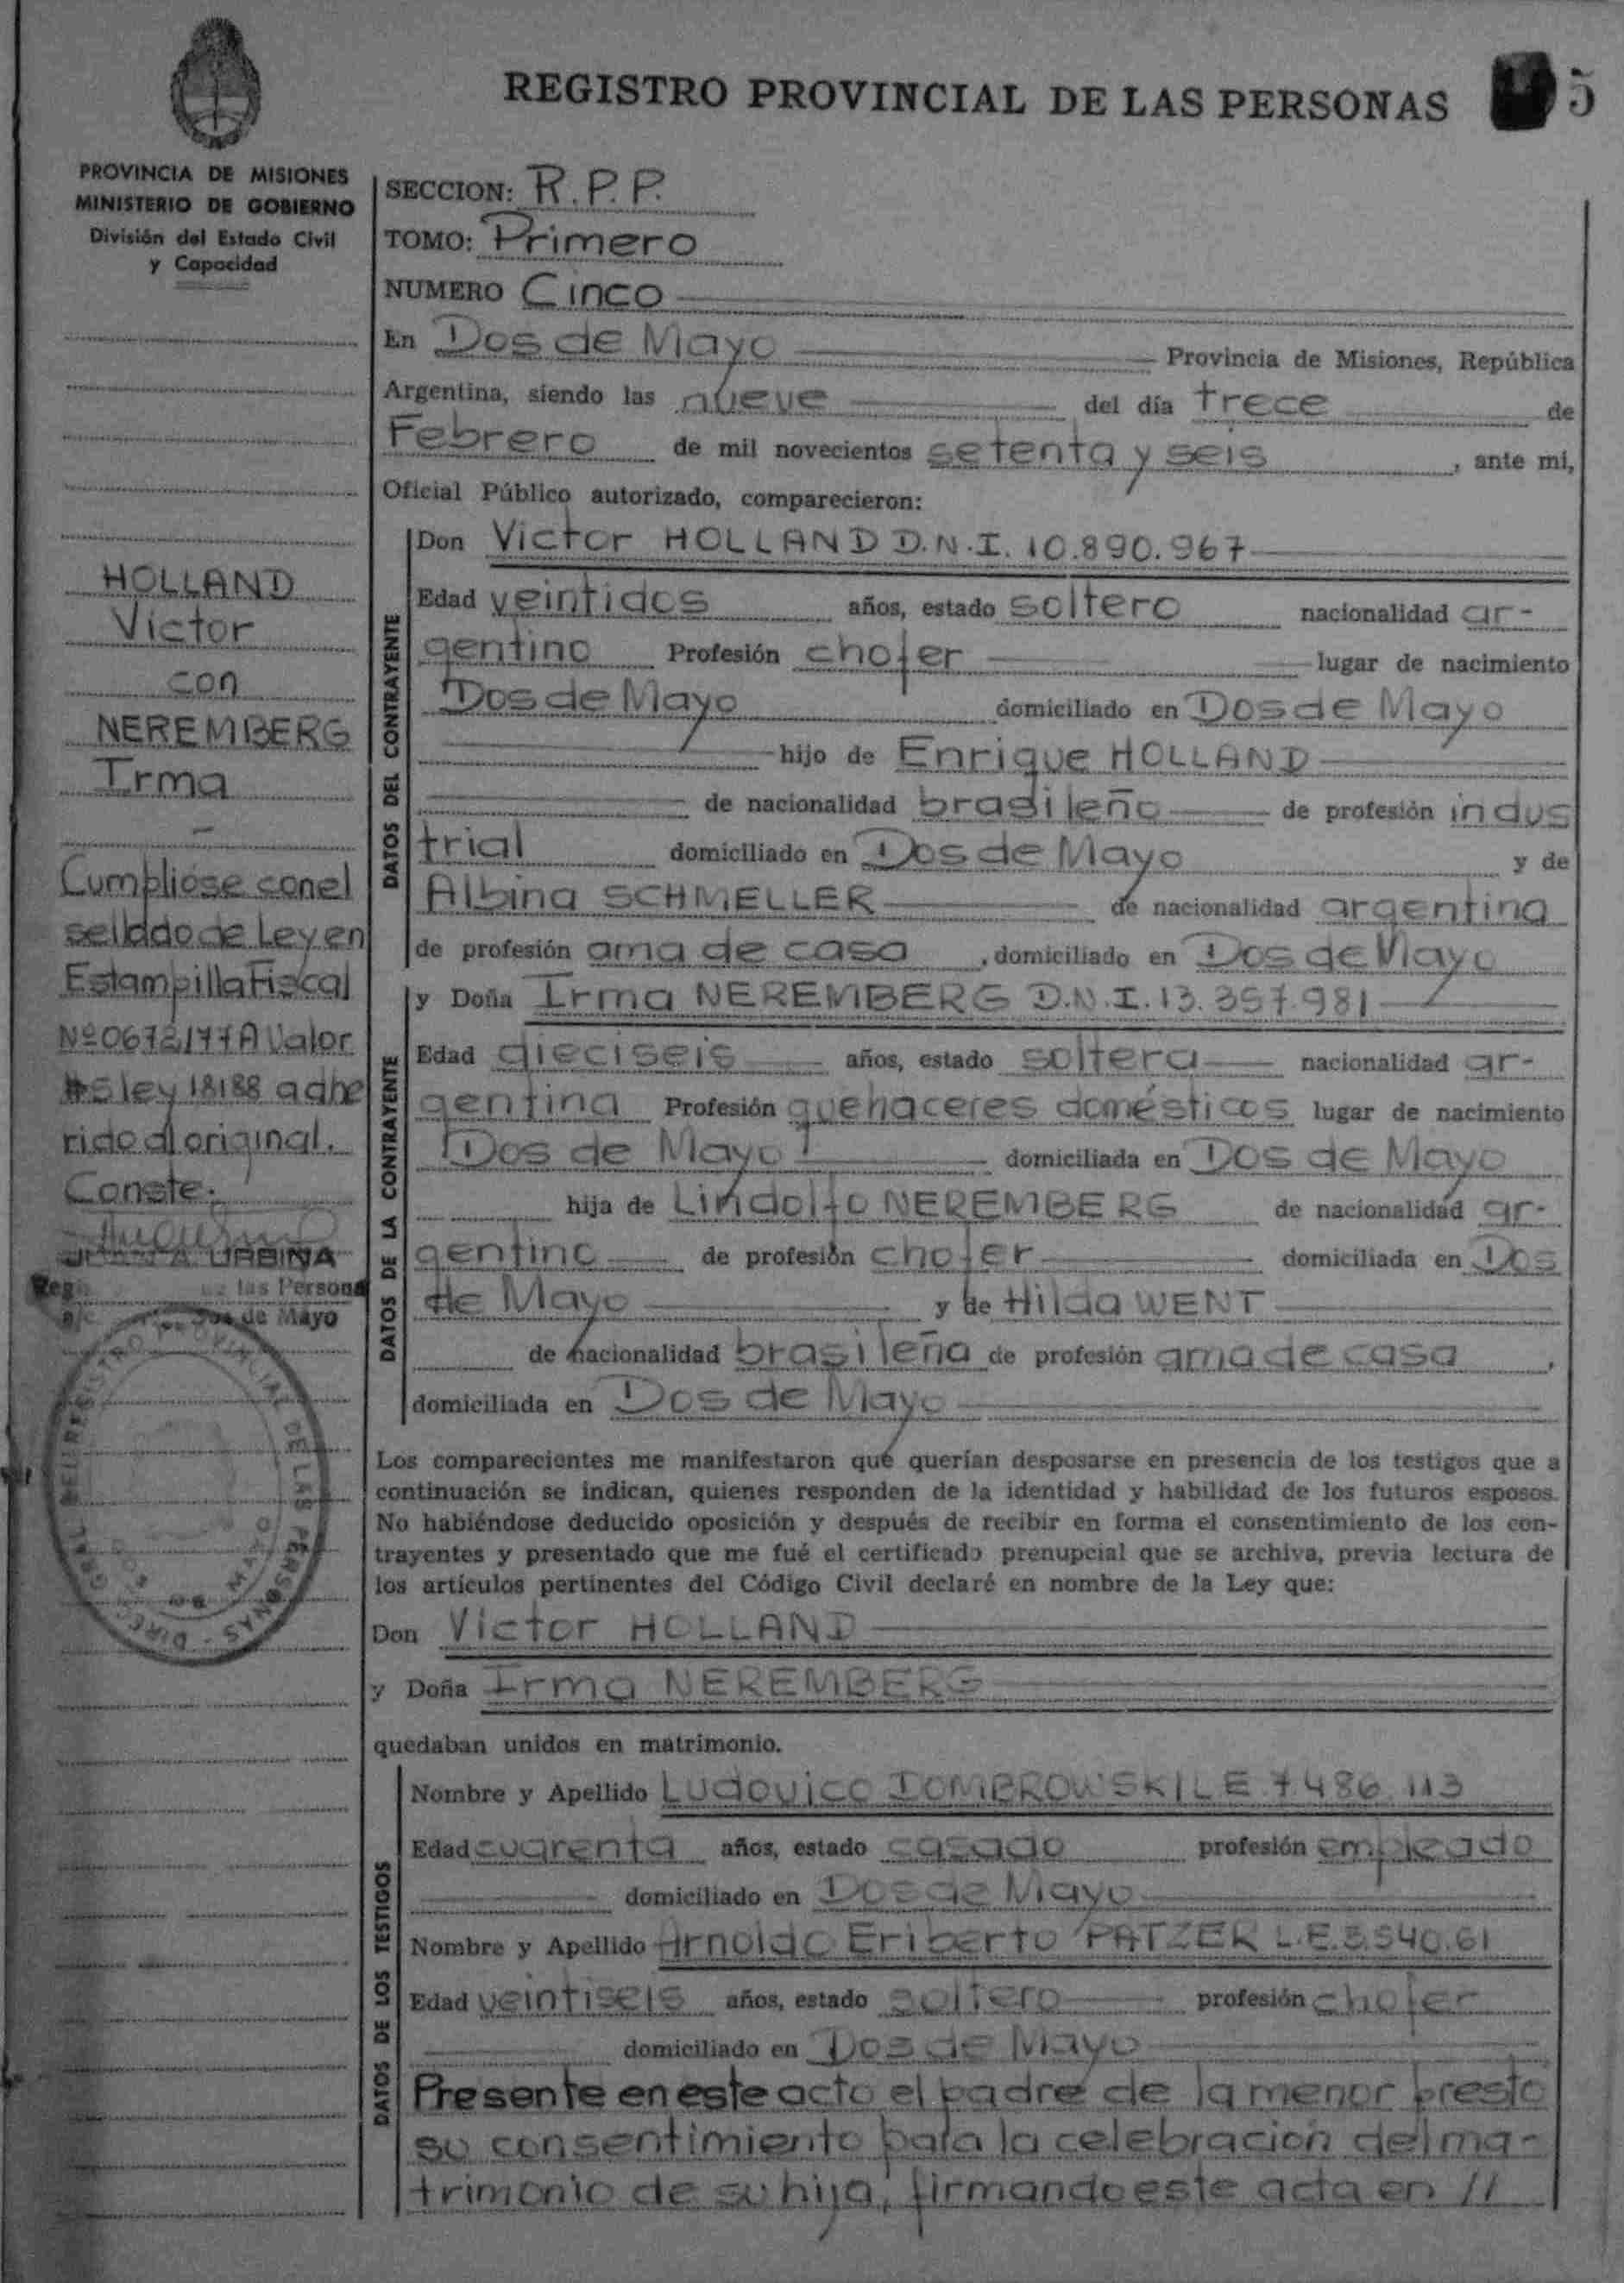 REGISTRO PROVINCIAL DE LAS PERSONAS
5
PROVINCIA DE MISIONES
MINISTERIO DE GOBIERNO
División del Estado Civil
y Capacidad
HOLLAND
Victor
con
NEREMBERG
Irma
Cumpliose con el
sellado de Ley en
Estampilla Fiscal
Valor
ley 18188 adhe
rido al original.
Conste.
URBINA
las Persona
Dos de Mayo
SECCION: R.P.P.
TOMO: Primero
NUMERO Cinco
En Dos de Mayo Provincia de Misiones, República
Argentina, siendo las nueve del día trece de
Febrero de mil novecientos setenta y seis, ante mi,
Oficial Público autorizado, comparecieron:
DATOS DEL CONTRAYENTE
Don Victor HOLLAND D.N.I. 10.890.967
Edad veintidos años, estado soltero nacionalidad ar-
gentino Profesión chofer lugar de nacimiento
Dos de Mayo domiciliado en Dos de Mayo
hijo de Enrique HOLLAND
de nacionalidad brasileño de profesión indus
trial domiciliado en Dos de Mayo y de
Albina SCHMELLER de nacionalidad argentina
de profesión ama de casa, domiciliado en Dos de Mayo
DATOS DE LA CONTRAYENTE
y Doña Irma NEREMBERG D.N.I. 13.357.981
Edad dieciseis años, estado soltera nacionalidad ar-
gentina Profesión quehaceres domésticos lugar de nacimiento
Dos de Mayo domiciliada en Dos de Mayo
hija de Lindolfo NEREMBERG de nacionalidad ar-
gentino de profesión chofer domiciliada en Dos
de Mayo y de Hilda WENT
de nacionalidad brasileña de profesión ama de casa,
domiciliada en Dos de Mayo
Los comparecientes me manifestaron que querían desposarse en presencia de los testigos que a
continuación se indican, quienes responden de la identidad y habilidad de los futuros esposos.
No habiéndose deducido oposición y después de recibir en forma el consentimiento de los con-
trayentes y presentado que me fué el certificado prenupcial que se archiva, previa lectura de
los artículos pertinentes del Código Civil declaré en nombre de la Ley que:
Don Victor HOLLAND
y Doña Irma NEREMBERG
quedaban unidos en matrimonio.
DATOS DE LOS TESTIGOS
Nombre y Apellido Ludovico DOMBROWSKI L.E. 7.486.113
Edad cuarenta años, estado casado profesión empleado
domiciliado en Dos de Mayo
Nombre y Apellido Arnoldo Eriberto PATZER L.E. 3.540.61
Edad veintiseis años, estado soltero profesión chofer
domiciliado en Dos de Mayo
Presente en este acto el padre de la menor presto
su consentimiento para la celebración del ma-
trimonio de su hija, firmando este acta en //